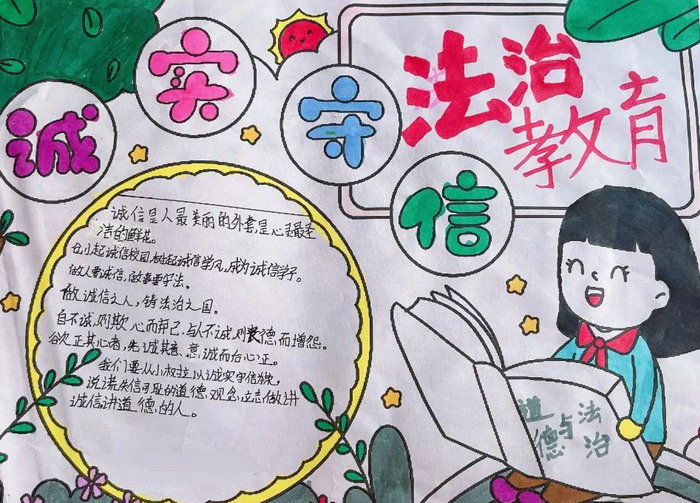 诚实守信
法治
教育
诚信是人最美丽的外套是心灵最圣
洁的鲜花。
做人要诚信,做事要守法。
做诚信之人,铸法治之国。
自不诚,则欺心而弃己,与人不诚,则丧德而增怨。
欲正其心者,先诚其意,意诚而后心正。
我们要从小树立以诚实守信为
说谎失信可耻的道德,观念,立志做讲
诚信讲道德,的人。
道德与法治